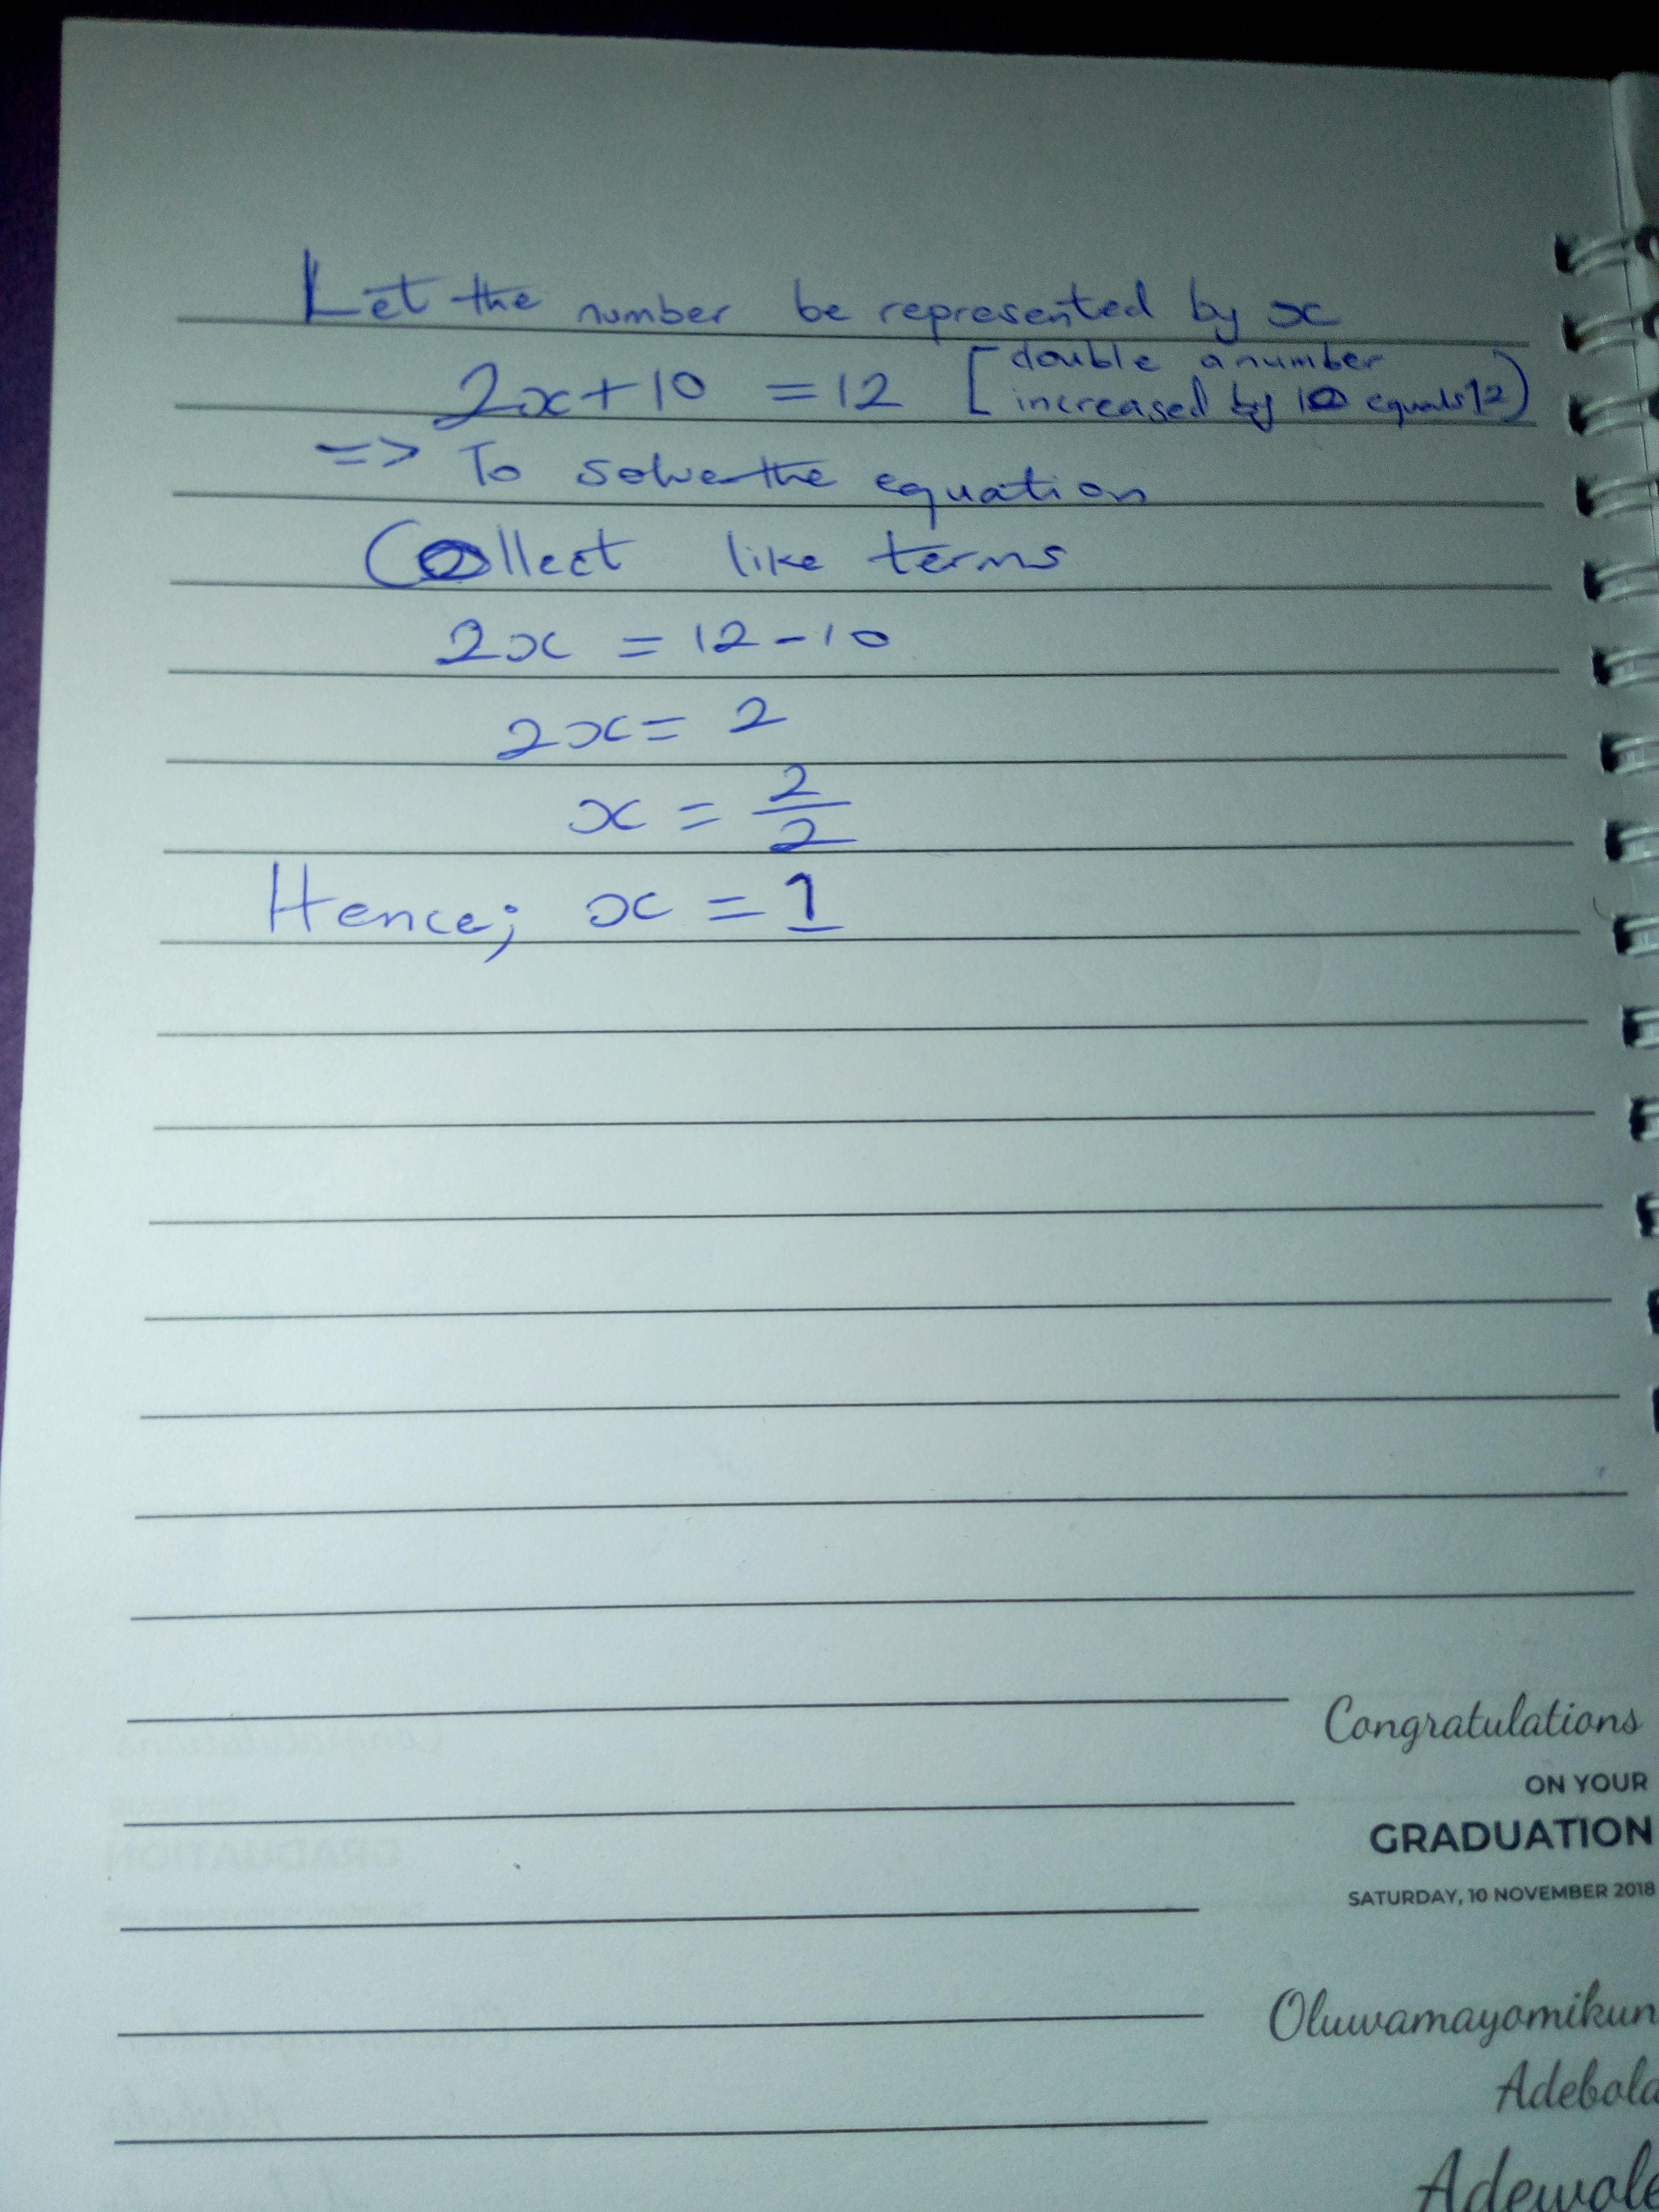 Let the number be represented by x
2x + 10 = 12 [double a number
increased by 10 equals 12)
=> To solve the equation
Collect like terms
2x = 12 - 10
2x = 2
x = 2/2
Hence; x = 1
Congratulations
ON YOUR
GRADUATION
SATURDAY, 10 NOVEMBER 2018
Oluwamayomikun
Adebola
Adewale